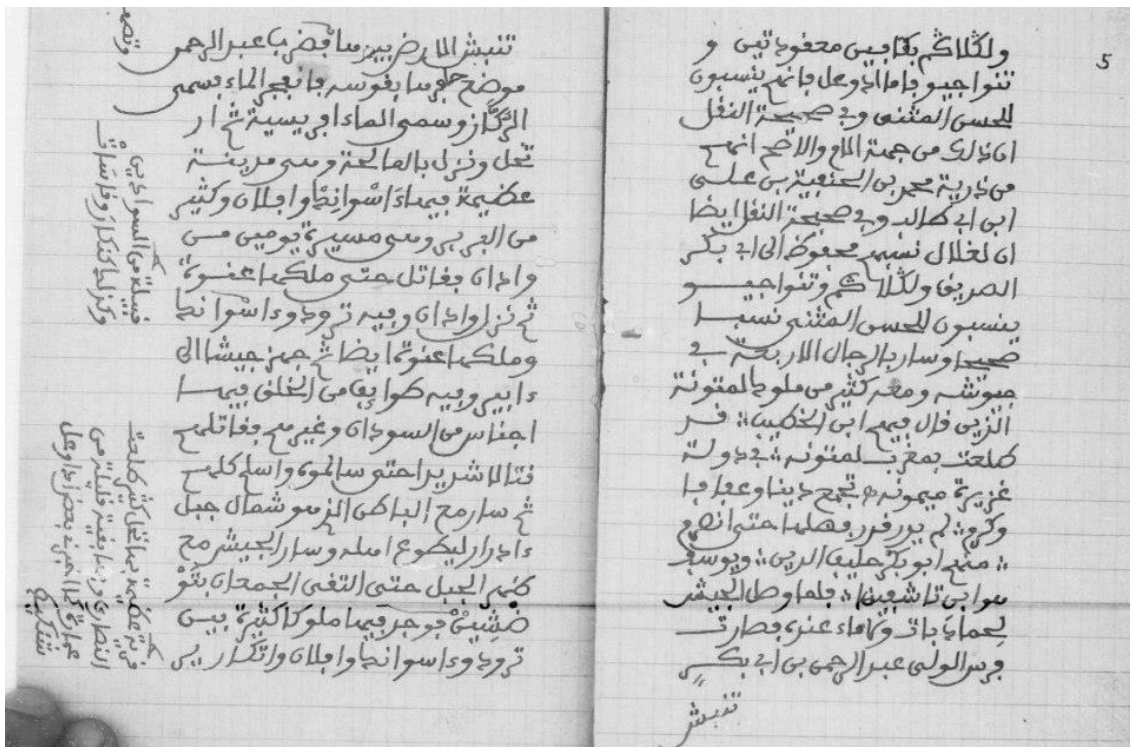 5
ولگلاگم محفوظ و
تنواجيو فاما ادوعل فانهم ينسبون
للحسن المثنى وفي صحيحة النقل
ان ذلك من جهة الام والاصح انهم
من ذرية محمد بن الحنفية بن على
ابن ابى طالب وفي صحيحة النقل ايضا
ان لغلال نسبهم محفوظ الى ابى بكر
الصديق ولگلاگم وتنواجيو
ينسبون للحسن المثنى نسبا
صحيحا وسار بالرجال الاربعة في
جيوشه ومعه كثير من ملوك لمتونة
الذين قال فيهم ابن الخطيب :: قد
طلعت بمغرب لمتونه :: في دولة
عزيزة ميمونه :: تجمع دينا وعفافا
وكرم :: لم يدر قدر فضلها حتى انصرم
:: منهم ابو بكر حليف الدين :: ويوسف
هو ابن تاشفين :: فلما وصل الجيش
بات عنده فصارت
فرس الولى عبد الرحمن بن ابى بكر
تنبش
تنبش الارض بيدها عبد الرحمن
موضع حفرها بقوسه فانفجر الماء فسمى
الرگاز وسمى الماء ابريسية ثم ار
تحل ونزل بالصالحة وهى مدينة
عظيمة فيها ءاسْوانِكْ وافلان وكثير
من البربر وهى مسيرة يومين من
وادان فقاتل حتى ملكها عنوة
ثم نزل وادان وفيه ترود وءاسْوانك
وملكها عنوة ايضا ثم جهز جيشا الى
ءابير وفيه طوايف من الخلق فيها
اجناس من السودان وغيرهم فقاتلهم
قتالا شديدا حتى سالموه واسلم كلهم
ثم سار مع الباطن الذى هو شمال جبل
ءادرار ليطوع اهله وسار الجيش مع
ظهر الجبل حتى التقى الجمعان بتَوْ
ضَشِيتْ فوجد فيها ملوكا كثيرة بين
ترود وءاسوانك وافلان واتكارير
قبيلة من السوادين
وكذلك كنكار
قرية عظيمة بها نخل كثير
النصارى وبها بقية قليلة من
عمارة كذا اخبرنى بعض ادوعل